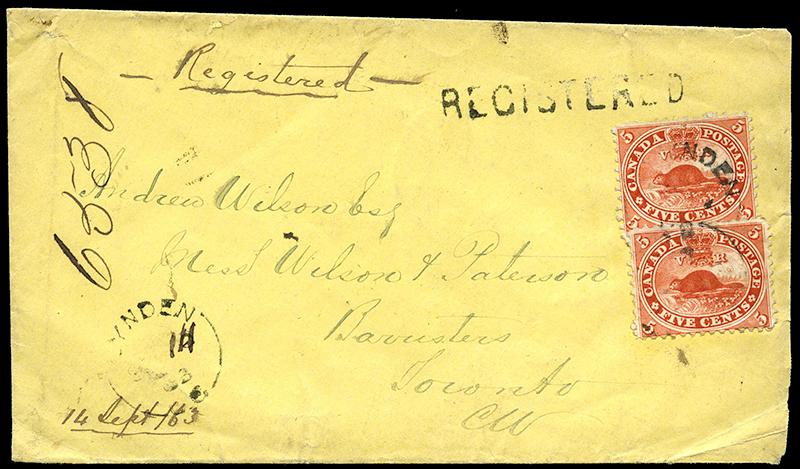 Registered
REGISTERED
Andrew Wilson Esq
Mess Wilson & Paterson
Barristers
Toronto
CW
14 Sept/63
YNDEN
14
NDEN
CANADA POSTAGE
5 5
V R
FIVE CENTS
5 5
CANADA POSTAGE
5 5
V R
FIVE CENTS
5 5